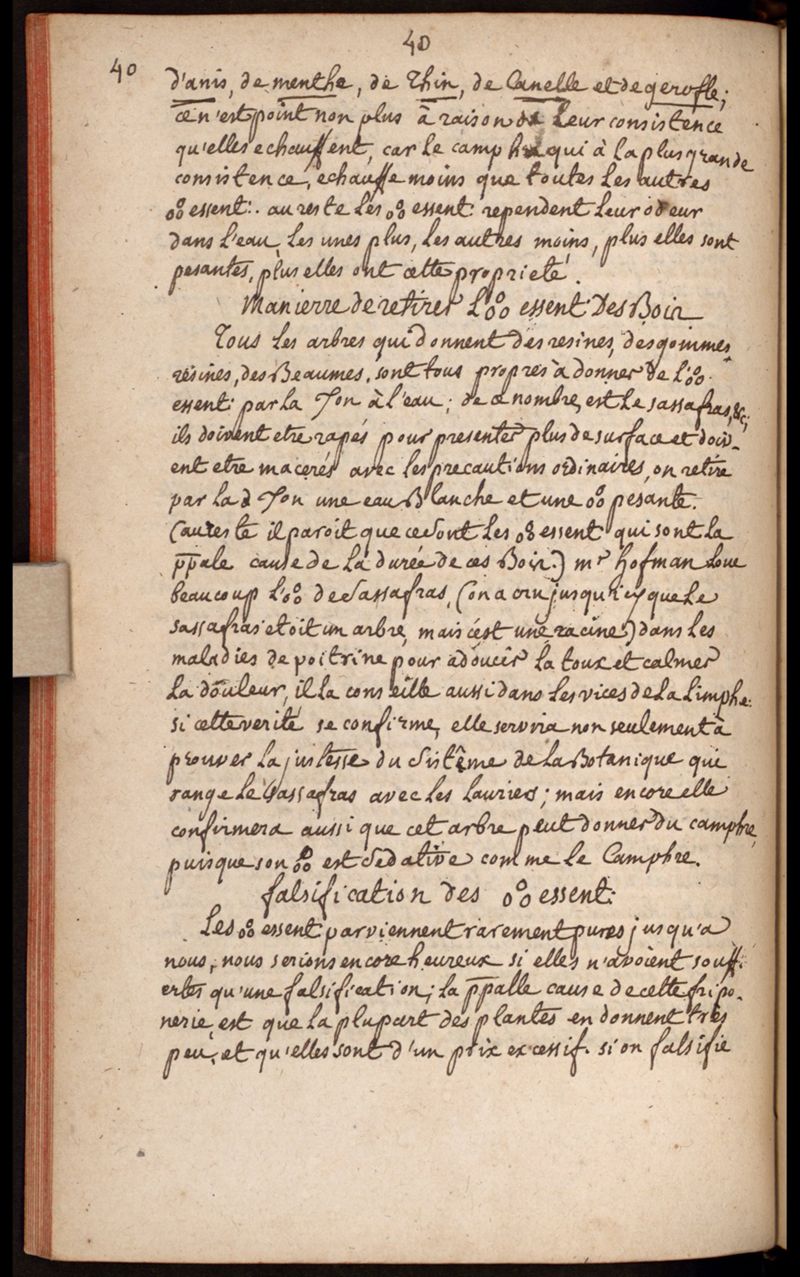 40
40
d'anis, de menthe, de Thin, de Canelle et de gerofle;
ce n'est point non plus à raison de Leur consistence
qu'elles echauffent, car le camphre qui à la plus grande
consistence, echauffe moins que toutes Les autres
o°o essent:. au reste Les o°o essent: rependent Leur odeur
dans L'eau, Les unes plus, Les autres moins, plus elles sont
pesantes, plus elles ont cette proprieté.
Manierre de retirer L'o°o essent Des Bois
Tous Les arbres qui donnent des resines, des gommes
résines, des Beaumes, sont tous propres à donner de L'o°o
essent: par La Jon à l'eau; de ce nombre, est Le sassafras, &c;
ils doivent etre rapés pour presenter plus de surface et doiv-
ent etre macerés avec Les precautions ordinaires, on retire
par la d Jon une eau Blanche et une o°o pesante.
(aureste il paroit que ce sont Les o°o essent qui sont La
ppale cause de La durée de ces Bois.) mr hofman Loue
beaucoup L'o°o de Sassafras, (on a cru jusqu'icy que Le
sassafras etoit un arbre, mais c'est une racine) dans Les
maladies de poitrine pour adoucir La toux et calmer
La douleur, il la conseille aussi dans Les vices de La Limphe:
si cette verité se confirme, elle servira non seulement à
prouver La justesse du Sistême de La Botanique qui
range Le Sassafras avec Les Lauriers; mais encore elle
confirmera aussi que cet arbre peut donner du camphre,
puisque son o°o est Sedative comme Le Camphre.
falsification des o°o essent:
Les o°o essent parviennent rarement pures jusqu'a
nous, nous serions encore heureux si elles n'avoient souff-
ertes qu'une falsification; La ppalle cause de cette fripo-
nerie, est que La plupart des plantes en donnent très
peu, et qu'elles sont d'un prix excessif. si on falsifie